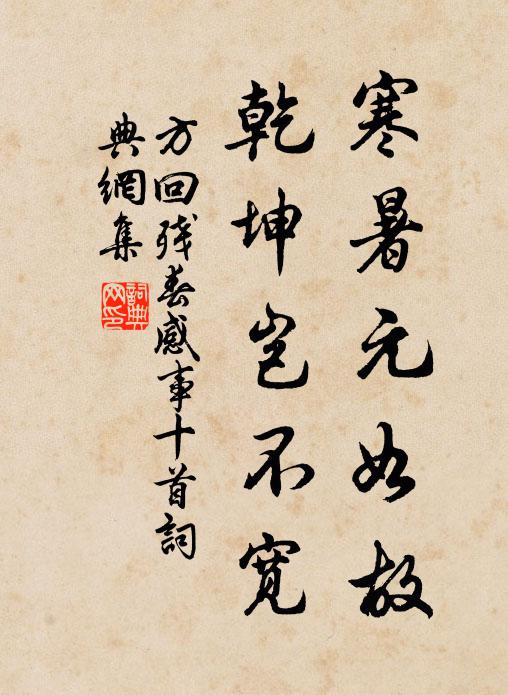 寒暑元如故
乾坤岂不寬
方回残春感事十首詞
典網集
詞典網印